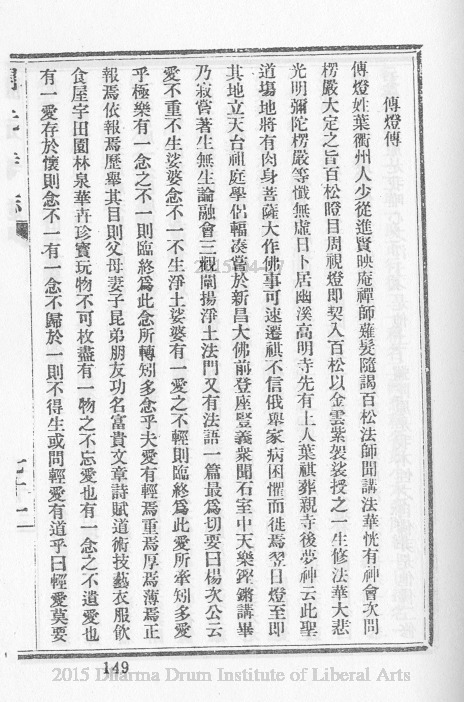 傅燈傳
傅燈姓葉衢州人少從進賢映庵禪師薙髮隨謁百松法師聞講法華恍有神會次問
楞嚴大定之旨百松瞪目周視燈即契入百松以金雲紫袈裟授之一生修法華大悲
光明彌陀楞嚴等懺無虛日卜居幽溪高明寺先有土人葉祺葬親寺後夢神云此聖
道塲地將有肉身菩薩大作佛事可速遷祺不信俄舉家病困懼而徙焉翌日燈至即
其地立天台祖庭學侶輻湊嘗於新昌大佛前登座豎義衆聞石室中天樂鏗鏘講畢
乃寂嘗著生無生論融會三觀闡揚淨土法門又有法語一篇最爲切要曰楊次公云
愛不重不生娑婆念不一不生淨土娑婆有一愛之不輕則臨終爲此愛所牽矧多愛
乎極樂有一念之不一則臨終爲此念所轉矧多念乎夫愛有輕焉重焉厚焉薄焉正
報焉依報焉歷舉其目則父母妻子昆弟朋友功名富貴文章詩賦道術技藝衣服飲
食屋宇田園林泉華卉珍寶玩物不可枚盡有一物之不忘愛也有一念之不遣愛也
有一愛存於懷則念不一有一念不歸於一則不得生或問輕愛有道乎曰輕愛莫要
149
2015 Dharma Drum Institute of Liberal Arts